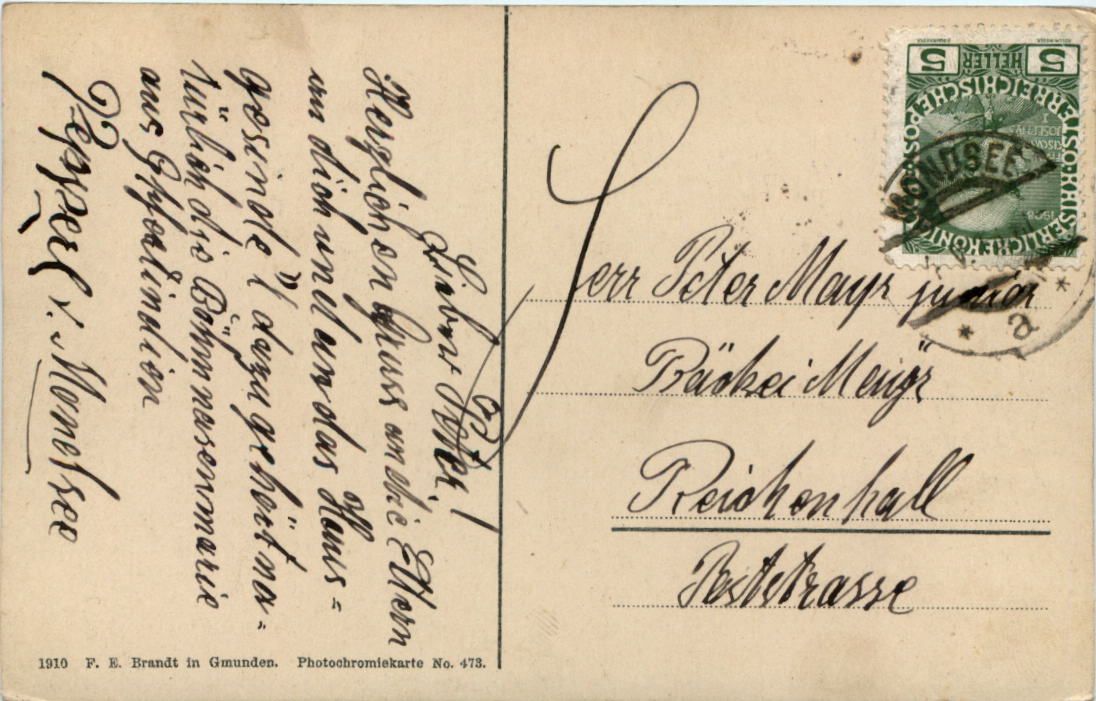 Lieber Peter!
Herzlichen Gruss an die Eltern
an dich und an das Haus=
gesinde (dazu gehört na=
türlich die Böhmnasenmarie
aus
Pepperl v. Mondsee
Herr Peter Mayr junior
Bäckerei Mayr
Reichenhall
Poststrasse
5 HELLER 5
KAISERLICHE KÖNIGLICHE ÖSTERREICHISCHE POST
1908
MONDSEE
* a *
1910 F. E. Brandt in Gmunden. Photochromiekarte No. 473.